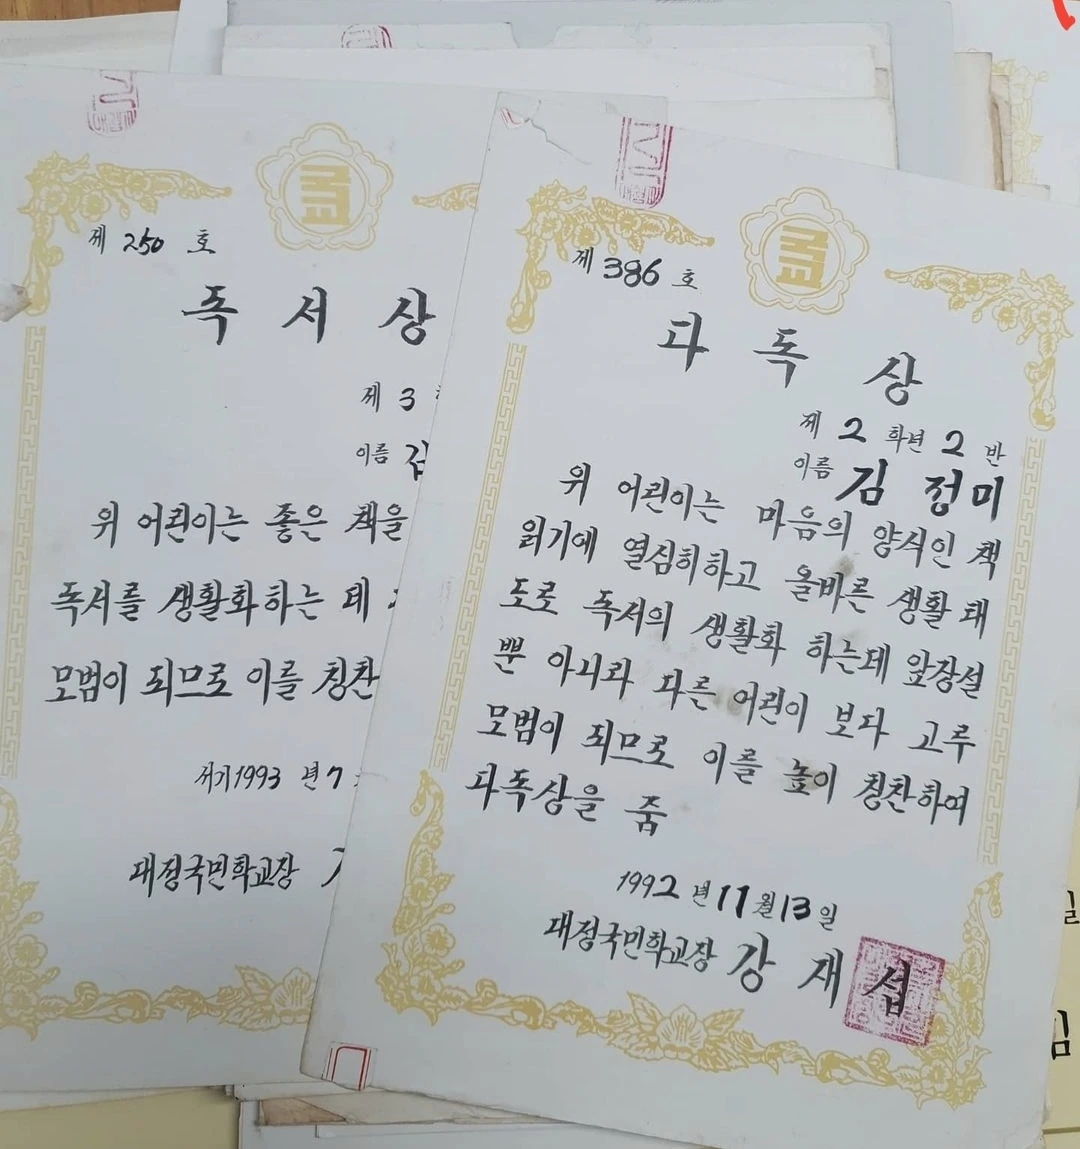 국교
제 250 호
독서상
제 3
이름 김
위 어린이는 좋은 책을
독서를 생활화하는 데
모범이 되므로 이를 칭찬
서기1993 년 7
대정국민학교장
국교
제 386 호
다독상
제 2 학년 2 반
이름 김정미
위 어린이는 마음의 양식인 책
읽기에 열심히하고 올바른 생활 태
도로 독서의 생활화 하는데 앞장설
뿐 아니라 다른 어린이 보다 고루
모범이 되므로 이를 높이 칭찬하여
다독상을 줌
1992 년 11 월 13 일
대정국민학교장 강재섭